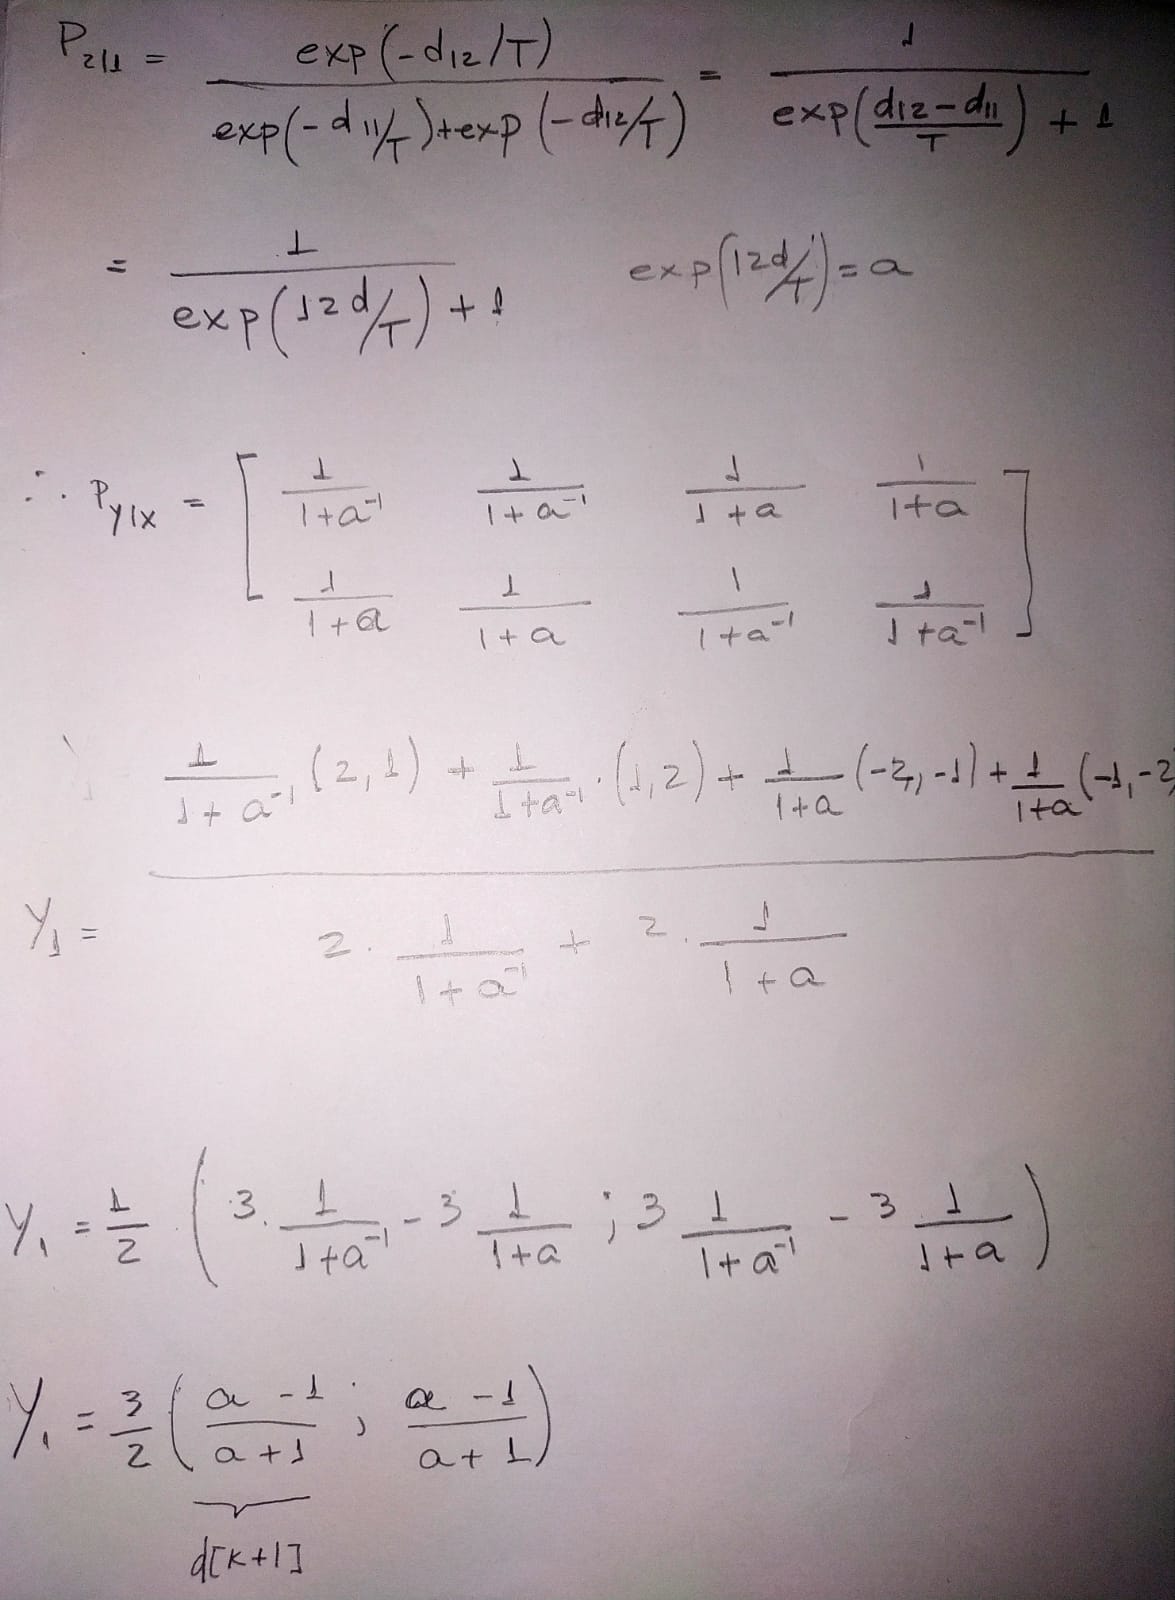 P2|1 = exp(-d12/T) / (exp(-d11/T)+exp(-d12/T)) = 1 / (exp((d12-d11)/T) + 1)
= 1 / (exp(12d/T) + 1) exp(12d/T) = a
∴ Py|x = [ 1/(1+a⁻¹) 1/(1+a⁻¹) 1/(1+a) 1/(1+a)
1/(1+a) 1/(1+a) 1/(1+a⁻¹) 1/(1+a⁻¹) ]
Y1 = ( 1/(1+a⁻¹) (2,1) + 1/(1+a⁻¹) . (1,2) + 1/(1+a) (-2,-1) + 1/(1+a) (-1,-2 ) / ( 2. 1/(1+a⁻¹) + 2. 1/(1+a) )
Y1 = 1/2 ( 3. 1/(1+a⁻¹) - 3 1/(1+a) ; 3 1/(1+a⁻¹) - 3 1/(1+a) )
Y1 = 3/2 ( (a-1)/(a+1) ; (a-1)/(a+1) )
d[k+1]